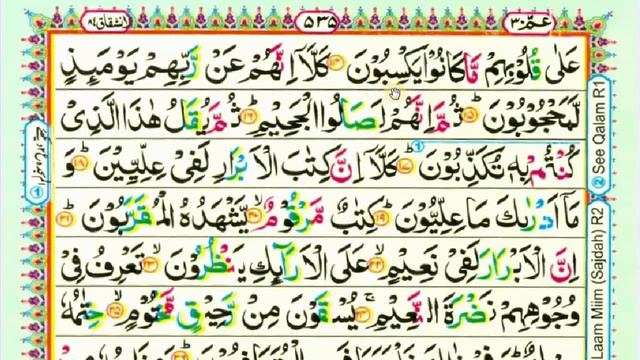 عمّ ٣٠
٥٣٥
عَلٰى قُلُوْبِهِمْ مَّا كَانُوْا يَكْسِبُوْنَ ۝١٤ كَلَّاۤ اِنَّهُمْ عَنْ رَّبِّهِمْ يَوْمَئِذٍ
لَّمَحْجُوْبُوْنَ ؕ۝١٥ ثُمَّ اِنَّهُمْ لَصَالُوا الْجَحِيْمِ ؕ۝١٦ ثُمَّ يُقَالُ هٰذَا الَّذِىْ
كُنْتُمْ بِهٖ تُكَذِّبُوْنَ ؕ۝١٧ كَلَّاۤ اِنَّ كِتٰبَ الْاَبْرَارِ لَفِىْ عِلِّيِّيْنَ ؕ۝١٨ وَ
مَاۤ اَدْرٰىكَ مَا عِلِّيُّوْنَ ؕ۝١٩ كِتٰبٌ مَّرْقُوْمٌ ۙ۝٢٠ يَّشْهَدُهُ الْمُقَرَّبُوْنَ ؕ۝٢١
اِنَّ الْاَبْرَارَ لَفِىْ نَعِيْمٍ ۙ۝٢٢ عَلَى الْاَرَآئِكِ يَنْظُرُوْنَ ۙ۝٢٣ تَعْرِفُ فِىْ
وُجُوْهِهِمْ نَضْرَةَ النَّعِيْمِ ۚ۝٢٤ يُسْقَوْنَ مِنْ رَّحِيْقٍ مَّخْتُوْمٍ ۙ۝٢٥ خِتٰمُهٗ
② See Qalam R1
Laam Miim (Sajdah) R2